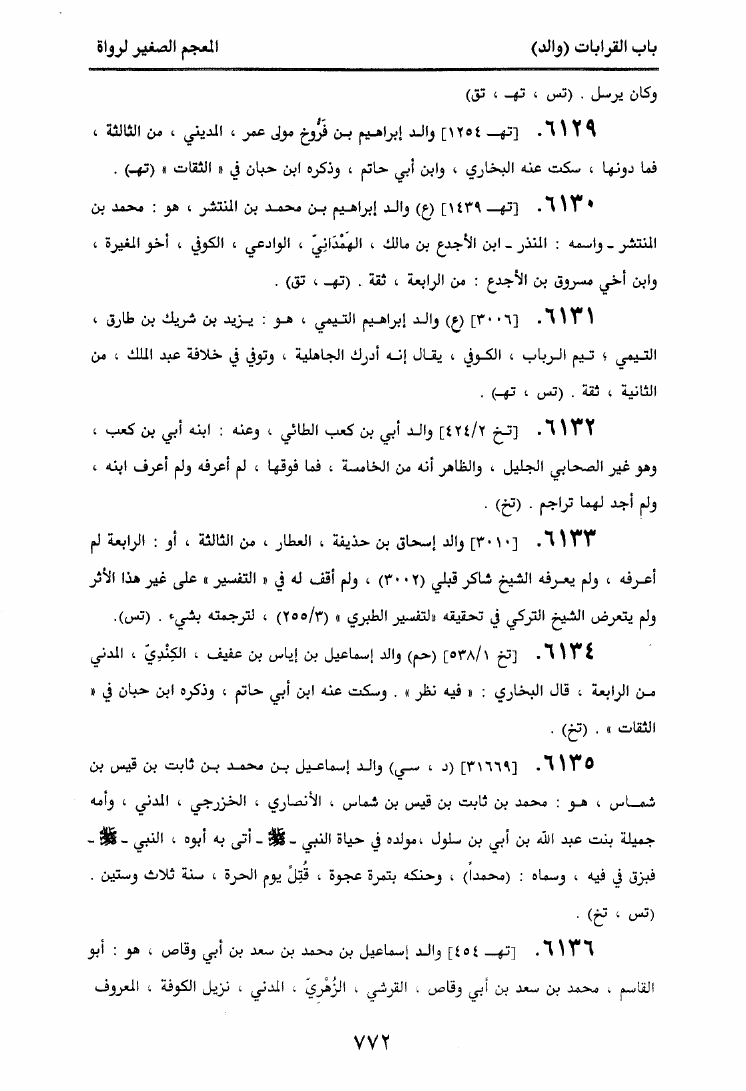 باب القرابات (والد) المعجم الصغير لرواة
وكان يرسل . (تس ، تهـ ، تق)
٦١٢٩. [تهـ ١٢٥٤] والد إبراهيم بن فَرُّوخ مولى عمر ، المديني ، من الثالثة ،
فما دونها ، سكت عنه البخاري ، وابن أبي حاتم ، وذكره ابن حبان في « الثقات » (تهـ) .
٦١٣٠. [تهـ ١٤٣٩] (ع) والد إبراهيم بن محمد بن المنتشر ، هو : محمد بن
المنتشر ـ واسمه : المنذر ـ ابن الأجدع بن مالك ، الهَمْدَانِيّ ، الوادعي ، الكوفي ، أخو المغيرة ،
وابن أخي مسروق بن الأجدع : من الرابعة ، ثقة . (تهـ ، تق) .
٦١٣١. [٣٠٠٦] (ع) والد إبراهيم التيمي ، هو : يزيد بن شريك بن طارق ،
التيمي ؛ تيم الرباب ، الكوفي ، يقال إنه أدرك الجاهلية ، وتوفي في خلافة عبد الملك ، من
الثانية ، ثقة . (تس ، تهـ) .
٦١٣٢. [تخ ٤٢٤/٢] والد أبي بن كعب الطائي ، وعنه : ابنه أبي بن كعب ،
وهو غير الصحابي الجليل ، والظاهر أنه من الخامسة ، فما فوقها ، لم أعرفه ولم أعرف ابنه ،
ولم أجد لهما تراجم . (تخ) .
٦١٣٣. [٣٠١٠] والد إسحاق بن حذيفة ، العطار ، من الثالثة ، أو : الرابعة لم
أعرفه ، ولم يعرفه الشيخ شاكر قبلي (٣٠٠٢) ، ولم أقف له في « التفسير » على غير هذا الأثر
ولم يتعرض الشيخ التركي في تحقيقه «لتفسير الطبري » (٢٥٥/٣) ، لترجمته بشيء . (تس).
٦١٣٤. [تخ ٥٣٨/١] (حم) والد إسماعيل بن إياس بن عفيف ، الكِنْدِيّ ، المدني
من الرابعة ، قال البخاري : « فيه نظر » . وسكت عنه ابن أبي حاتم ، وذكره ابن حبان في «
الثقات » . (تخ) .
٦١٣٥. [٣١٦٦٩] (د ، سي) والد إسماعيل بن محمد بن ثابت بن قيس بن
شماس ، هو : محمد بن ثابت بن قيس بن شماس ، الأنصاري ، الخزرجي ، المدني ، وأمه
جميلة بنت عبد الله بن أبي بن سلول ،مولده في حياة النبي ـ ﷺ ـ أتى به أبوه ، النبي ـ ﷺ ـ
فبزق في فيه ، وسماه : (محمداً) ، وحنكه بتمرة عجوة ، قُتِلَ يوم الحرة ، سنة ثلاث وستين .
(تس ، تخ) .
٦١٣٦. [تهـ ٤٥٤] والد إسماعيل بن محمد بن سعد بن أبي وقاص ، هو : أبو
القاسم ، محمد بن سعد بن أبي وقاص ، القرشي ، الزُهْرِيّ ، المدني ، نزيل الكوفة ، المعروف
٧٧٢